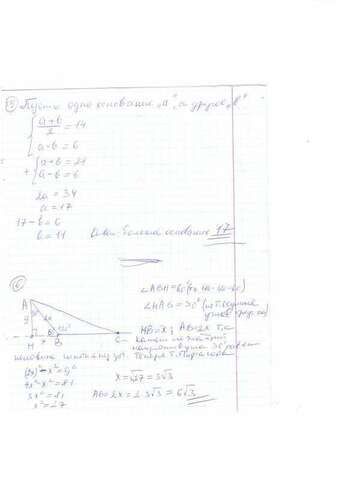 ⑤ Пусть одно основание "а", а другое "b"
{ a+b / 2 = 14
a-b = 6
+ { a+b = 21
a-b = 6
2a = 34
a = 17
17-b=6
b=11
большее основание 17
⑥
A
30°
2x
60°
120°
H x B C
∠ABH=60°
∠HAB=30°
HB=x; AB=2x т.к.
катет лежащий
напротив угла 30° равен
половине гипотенузы. Теорема Пифагора
(2x)²-x²=9²
4x²-x²=81
3x²=81
x²=27
x=√27=3√3
AB=2x=2·3√3=6√3